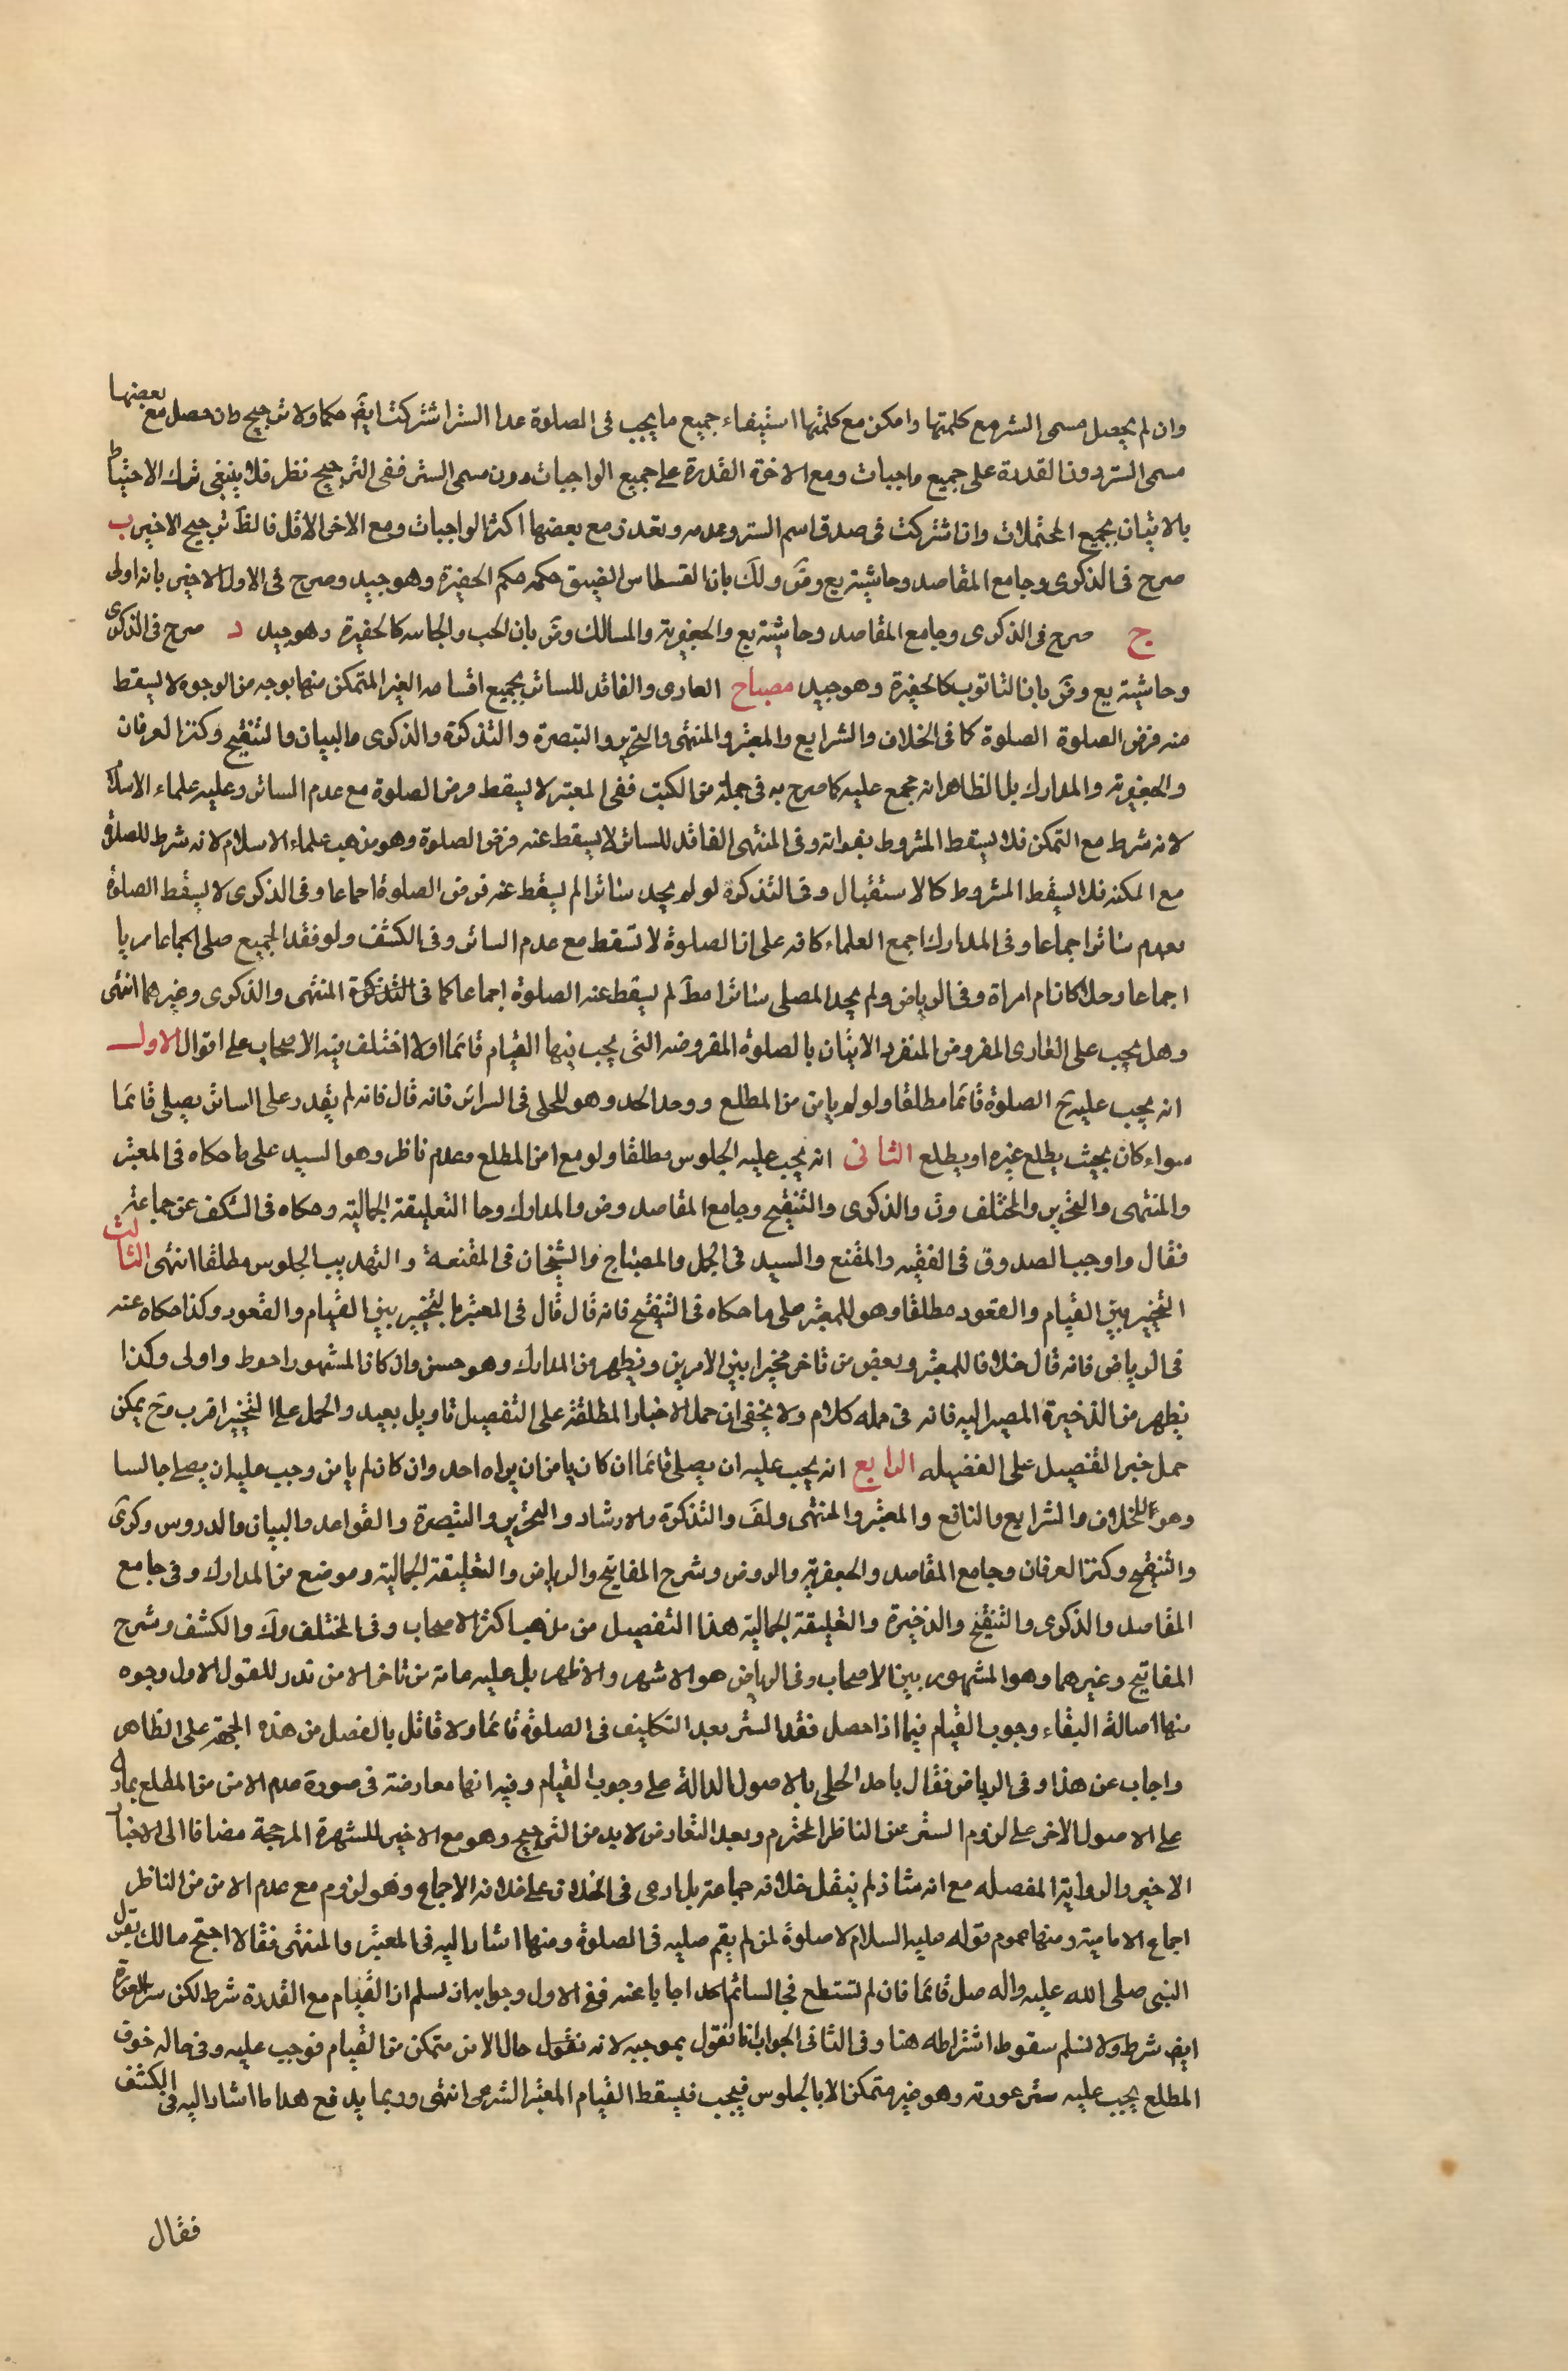 وان لم يحصل مسمى الستر مع كلمتيها وامكن مع كلمتيها استيفاء جميع ما يجب فى الصلوة عدا الستر اشتركت ايضَ حكما ولا ترجيح وان حصل مع بعضها
مسمى الستر دون القدرة على جميع واجبات ومع الاخرى القدرة على جميع الواجبات دون مسمى الستر ففى الترجيح نظر فلا ينبغى ترك الاحتياط
بالاتيان بجميع المحتملات وان اشتركت فى صدق اسم الستر وعدمه وتعذر مع بعضها اكثر الواجبات ومع الاخر الاقل فالظَ ترجيح الاخير ب
صرح فى الذكرى وجامع المقاصد وحاشية يع وضَ ولكَ بان القسطاس الضيق حكمه حكم الحفيرة وهو جيد وصرح فى الاول الاخير بانه اولى
ج صرح فى الذكرى وجامع المقاصد وحاشية يع والجعفرية والمسالك وضَ بان الحب والجاسه كالحفيرة وهو جيد د صرح فى الذكرى
وحاشية يع وضَ بان التابوت كالحفيرة وهو جيد مصباح العارى والفاقد للساتر بجميع اقسامه الغير المتمكن منها بوجه من الوجوه لا يسقط
منه فرض الصلوة الصلوة كما فى الخلاف والشرايع والمعتبر والمنتهى والتحرير والتبصرة والتذكرة والذكرى والبيان والتنقيح وكنز العرفان
والجعفرية والمدارك بل الظاهر انه مجمع عليه كما صرح به فى جملة من الكتب ففى المعتبر لا يسقط فرض الصلوة مع عدم الساتر وعليه علماء الاسلام
لانه شرط مع التمكن فلا يسقط المشروط بفواته وفى المنتهى الفاقد للساتر لا يسقط عنه فرض الصلوة وهو مذهب علماء الاسلام لانه شرط للصلوة
مع المكنه فلا يسقط المشروط كالاستقبال وفى التذكرة لو لم يجد ساترا لم يسقط عنه فرض الصلوة اجماعا وفى الذكرى لا يسقط الصلوة
بعدم ساتر اجماعا وفى المدارك اجمع العلماء كافه على ان الصلوة لا تسقط مع عدم الساتر وفى الكشف ولو فقد الجميع صلى اجماعا عريا
اجماعا رجلا كان ام امراة وفى الرياض ولم يجد المصلى ساترا مطَ لم يسقط عنه الصلوة اجماعا كما فى التذكرة المنتهى والذكرى وغيرهما انتهى
وهل يجب على العارى المفروض المنفرد الاتيان بالصلوة المفروضه التى يجب فيها القيام قائما اولا اختلف فيه الاصحاب على اقوال الاول
انه يجب عليه ح الصلوة قائما مطلقا ولو لم يامن من المطلع ووجد الحد وهو للحلى فى السرائر فانه قال فانه لم يقدر على الساتر يصلى قائما
سواء كان بحيث يطلع غيره او يطلع الثانى انه يجب عليه الجلوس مطلقا ولو مع امن المطلع وعدم ناظر وهو السيد على ما حكاه فى المعتبر
والمنتهى والتحرير والمختلف وت والذكرى والتنقيح وجامع المقاصد وض والمدارك وحا التعليقة الجمالية وحكاه فى الكشف عن جماعة
فقال واوجب الصدوق فى الفقيه والمقنع والسيد فى الجمل والمصباح والشيخان فى المقنعة والتهذيب الجلوس مطلقا انتهى الثالث
التخيير بين القيام والقعود مطلقا وهو للمعتبر على ما حكاه فى التنقيح فانه قال قال فى المعتبر بالتخيير بين القيام والقعود وكذا حكاه عنه
فى الرياض فانه قال خلافا للمعتبر وبعض من تاخر مخيرا بين الامرين ويظهر من المدارك وهو حسن وان كان المشهور احوط واولى وكذا
يظهر من الذخيرة المصير اليه فانه فى جمله كلام ولا يخفى ان حمل الاخبار المطلقة على التفصيل تاويل بعيد والحمل على التخيير اقرب وح يمكن
حمل خبر التفصيل على الفضيله الرابع انه يجب عليه ان يصلى قائما ان كان يامن ان يراه احد وان كان لم يامن وجب عليه ان يصلى جالسا
وهو للخلاف والشرايع والنافع والمعتبر والمنتهى ولفَ والتذكرة والارشاد والتحرير والتبصرة والقواعد والبيان والدروس وكرى
والتنقيح وكنز العرفان وجامع المقاصد والجعفرية والروض وشرح المفاتيح والرياض والتعليقة الجمالية وموضع من المدارك وفى جامع
المقاصد والذكرى والتنقيح والذخيرة والتعليقة الجمالية هذا التفصيل من مذهب اكثر الاصحاب وفى المختلف وكَ والكشف وشرح
المفاتيح وغيرهما وهو المشهور بين الاصحاب وفى الرياض هو الاشهر والاظهر بل عليه عامة من تاخر الا من ندر للقول الاول وجوه
منها اصالة البقاء وجوب القيام فيما اذا حصل فقد الستر بعد التكليف فى الصلوة قائما ولا قائل بالفصل من هذه الجهة على الظاهر
واجاب عن هذا وفى الرياض فقال باحد الحلى بالاصول الدالة على وجوب القيام وفيه انها معارضة فى صورة عدم الامن من المطلع بما دل
على الاصول الاخر على لزوم الستر عن الناظر المحترم وبعد التعارض لابد من الترجيح وهو مع الاخير للشهرة المرجحة مضافا الى الاخبار
الاخير والرواية المفصله مع انه شاذ لم ينقل خلافه جماعة بل ادعى فى الخلاف على خلافه الاجماع وهو لزوم مع عدم الامن من الناظر
اجماع الامامية ومنها عموم قوله عليه السلام لا صلوة لمن لم يقم صلبه فى الصلوة ومنها اشار اليه فى المعتبر والمنتهى فقالا احتج مالك بقول
النبى صلى الله عليه واله صل قائما فان لم تستطع فجالسا ثم احد اجابا عنه ففى الاول وجوابه ان نسلم ان القيام مع القدرة شرط لكن ستر العورة
ايضَ شرط ولا نسلم سقوط اشتراطه هنا وفى الثانى الجواب انا نقول بموجبه لانه نقول حال الامن متمكن من القيام فوجب عليه وفى حاله خوف
المطلع يجب عليه ستر عورته وهو غير متمكن الا بالجلوس فيجب فيسقط القيام المعتبر الشرعى انتهى وربما يدفع هدا ما اشار اليه فى الكشف
فقال